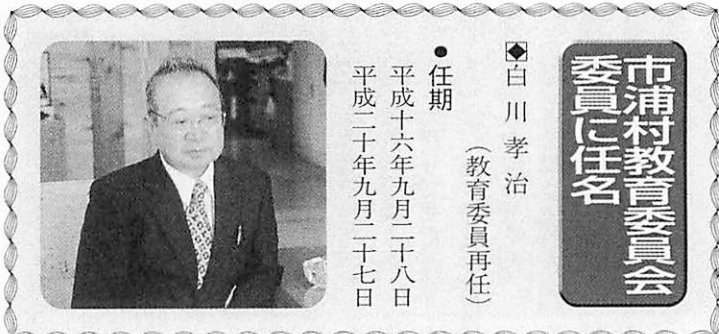 市浦村教育委員会
委員に任名
◆白川孝治
（教育委員再任）
●任期
平成十六年九月二十八日
平成二十年九月二十七日